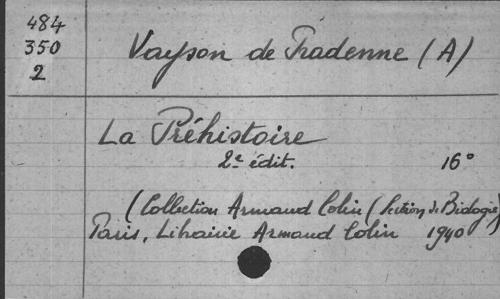 484
350
2
Vayson de Pradenne (A)
La Préhistoire
2e édit. 16°
(Collection Armand Colin (Section de Biologie)
Paris, Librairie Armand Colin 1940